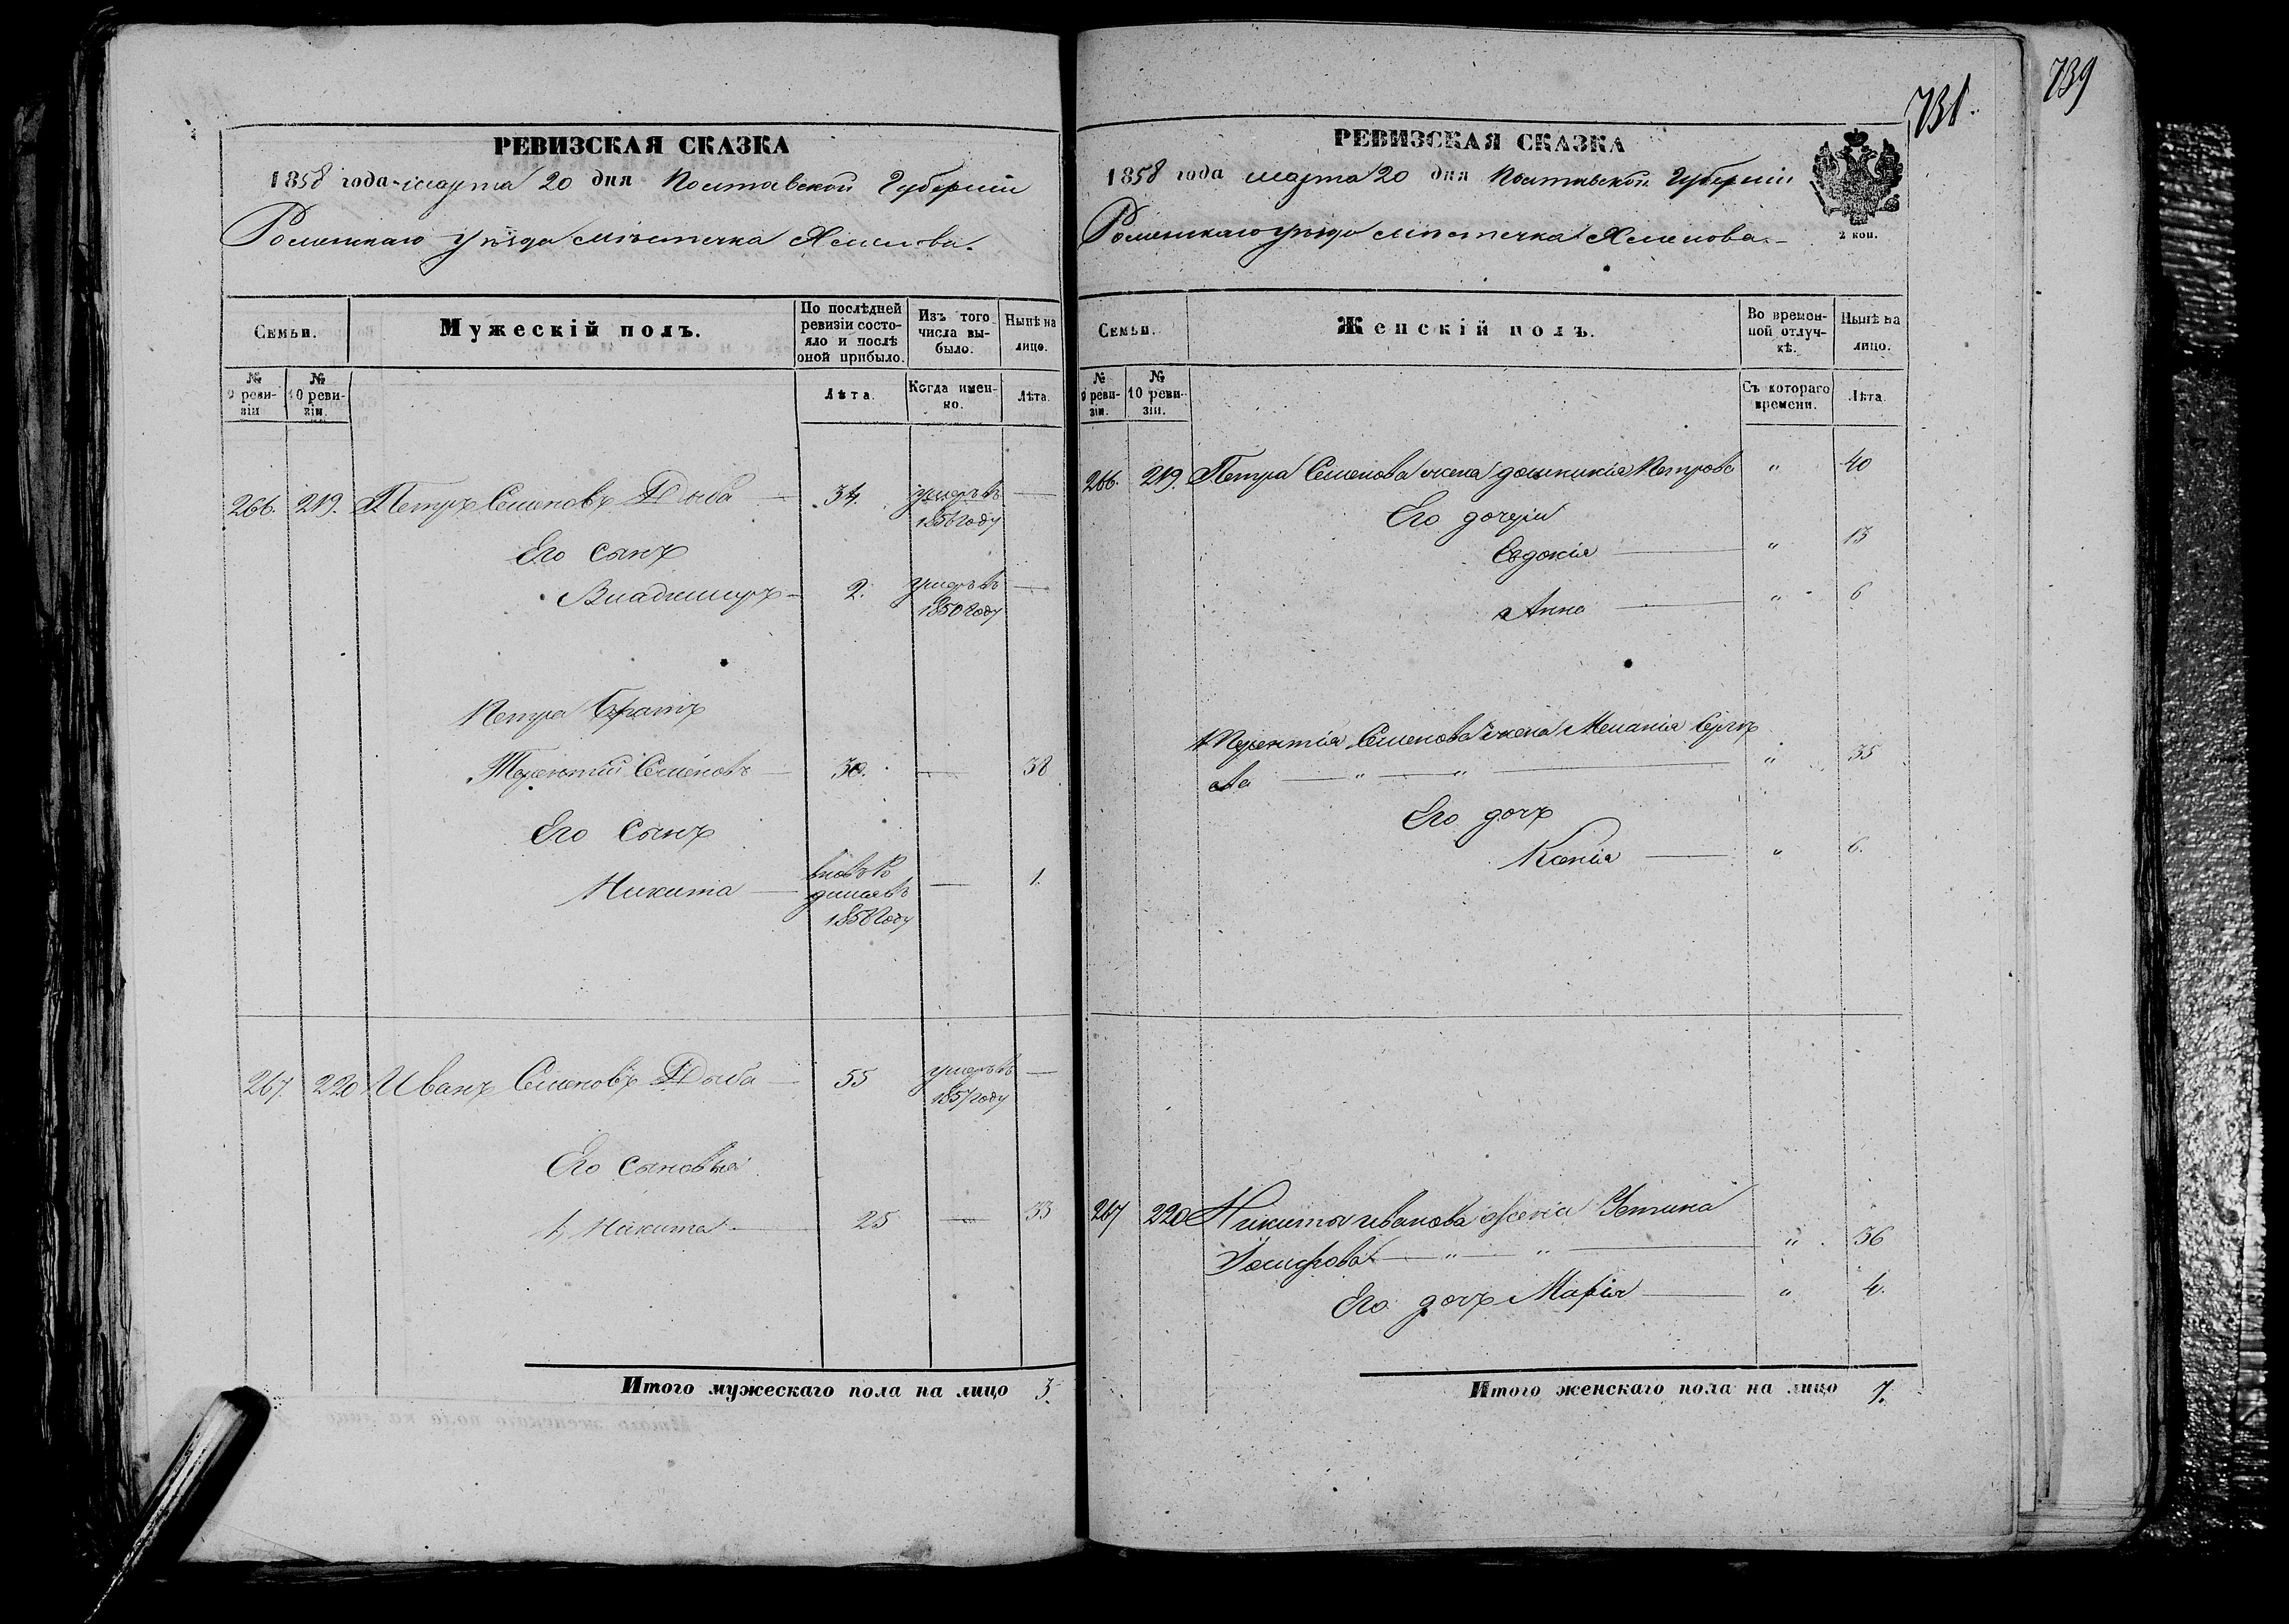 739
731.
РЕВИЗСКАЯ СКАЗКА
1858 года марта 20 дня Полтавской Губерніи
Роменскаго уѣзда мѣстечка Хмелова.
Семьи.
Мужескій полъ.
По послѣдней ревизіи состо-
яло и послѣ оной прибыло.
Изъ того числа вы-
было.
Нынѣ на лицо.
№ 9 реви-
зіи
№ 10 реви-
зіи.
Лѣта.
Когда имен-
но.
Лѣта.
266. 219. Петръ Семеновъ Дыба 34. умеръ въ
1856 году
Его сынъ
Владимиръ 2. умеръ въ
1850 году
Петра братъ
Терентій Семеновъ 30. 38
Его сынъ
Никита 1.
267. 220 Иванъ Семеновъ Дыба 55 умеръ въ
1857 году
Его сыновья
1, Никита 25 33
Итого мужескаго пола на лицо 3.
РЕВИЗСКАЯ СКАЗКА
1858 года марта 20 дня Полтавской Губерніи
Роменскаго уѣзда мѣстечка Хмелова.
2 коп.
Семьи.
Женскій полъ.
Во времен-
ной отлуч-
кѣ.
Нынѣ на лицо.
№ 9 реви-
зіи.
№ 10 реви-
зіи.
Съ котораго времени.
Лѣта.
266. 219. Петра Семенова жена Домникія Петрова " 40
Его дочери
Евдокія " 13
Анна " 6
Терентія Семенова жена Меланія Сергѣ
ева " " " 35
Его дочь
Ксенія " 6.
267 220 Никиты Иванова жена Устина
Іосифова " " " 36
Его дочь Марія " 4.
Итого женскаго пола на лицо 7.